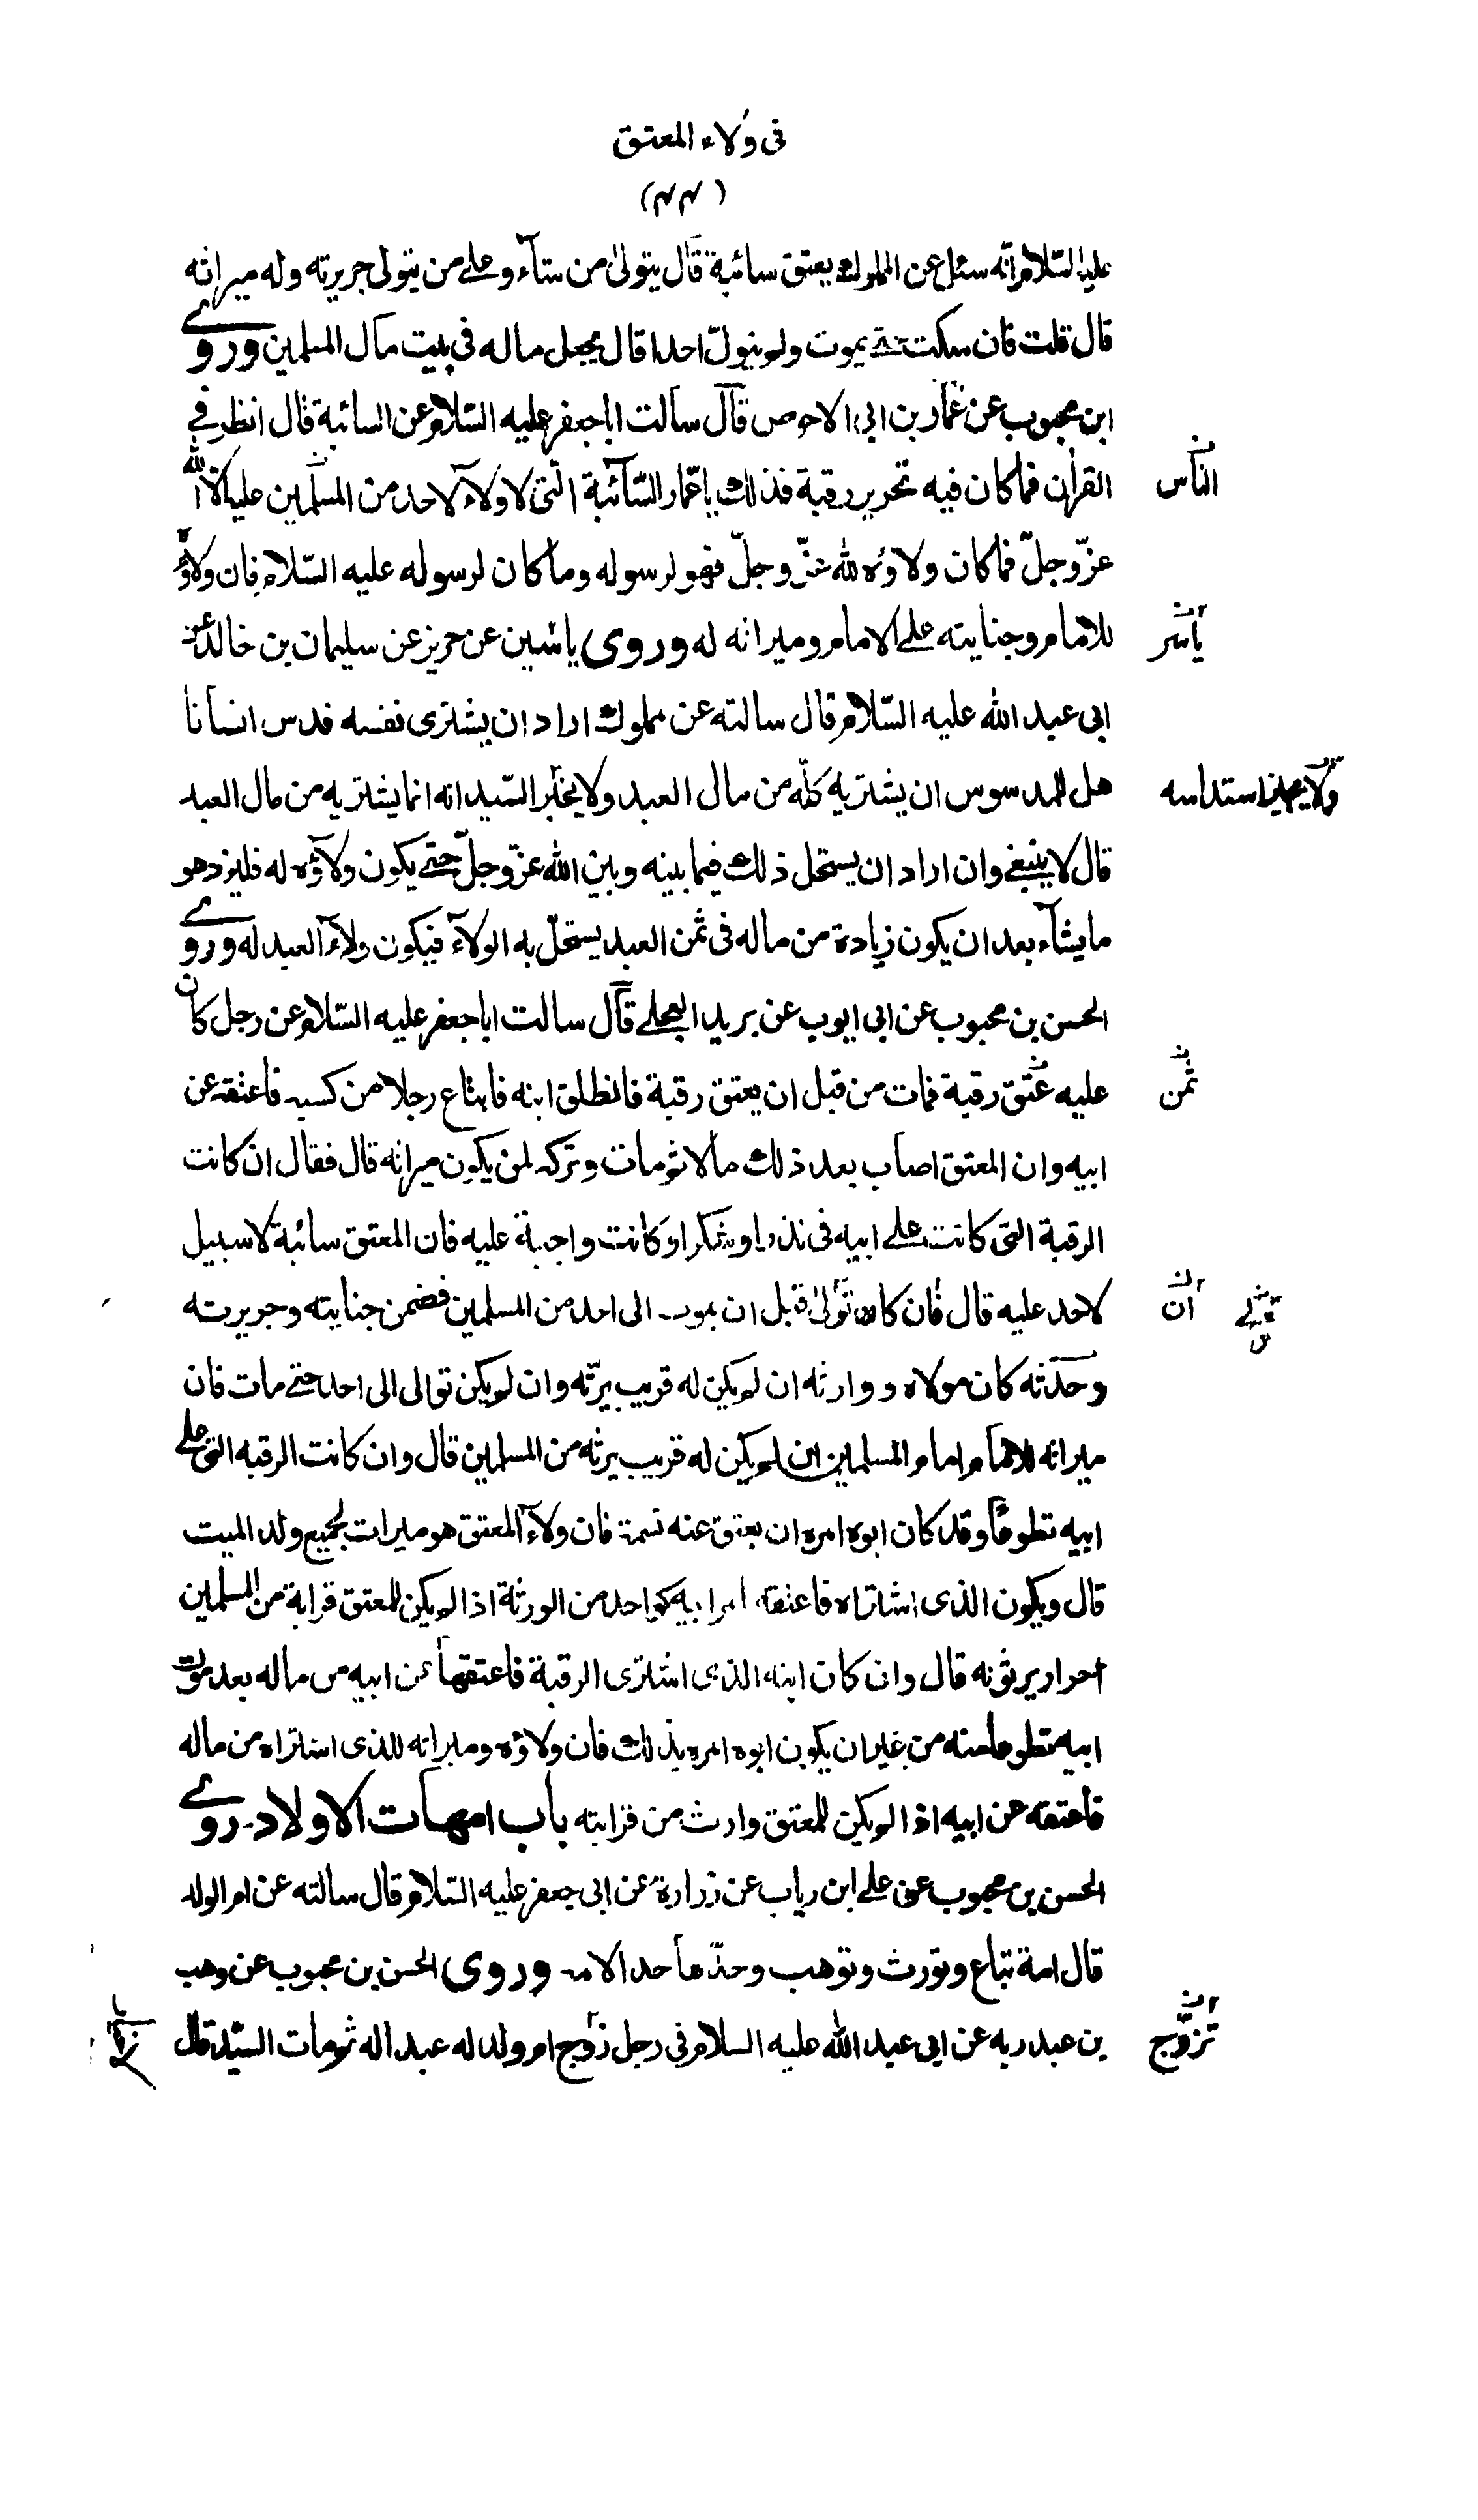 فى ولاء المعتق
(۴۴)
عليه السّلام انّه سئل عن المملوك يعتق سائبة قال يتولى من شآء و على من يتولى جريرته وله ميراثه
قال قلت فان سكت حتى يموت ولم يتولّ احدا قال يجعل ماله فى بيت مال المسلمين وروى
ابن محبوب عن عمار بن ابى الاحوص قال سالت ابا جعفر عليه السّلام عن السائبة فقال انظر فى
القرآن فما كان فيه تحرير رقبة فذلك يا عمار السّآئبة التى لا ولاء لاحد من المسلمين عليه الا الله
الناس
عزّ وجلّ فما كان ولاؤه لله عزّ وجلّ فهو لرسوله وما كان لرسوله عليه السّلام فان ولاؤه
للامام وجنايته على الامام وميراثه له وروى ياسين عن حريز عن سليمان بن خالد عن
ياسر
ابى عبد الله عليه السّلام قال سالته عن مملوك اراد ان يشترى نفسه فدس انسانا
هل للمدسوس ان يشتريه كلّه من مال العبد ولا يخبر السّيد انه انما يشتريه من مال العبد
قال لا ينبغى وان اراد ان يستحل ذلك فيما بينه وبين الله عزّ وجلّ حتى يكون ولاؤه له فليزد هو
ما يشآء بعد ان يكون زيادة من ماله فى ثمن العبد يستحلّ به الولآء فيكون ولآء العبد له وروى
الحسن بن محبوب عن ابى ايوب عن بريد العجلى قال سالت ابا جعفر عليه السّلام عن رجل كان
عليه عتق رقبة فمات من قبل ان يعتق رقبة فانطلق ابنه فابتاع رجلا من كسبه فاعتقه عن
ثمن
ابيه وان المعتق اصاب بعد ذلك مالا ثم مات وتركه لمن يكون ميراثه قال فقال ان كانت
الرقبة التى كانت على ابيه فى نذر او شكر او كانت واجبة عليه فان المعتق سائبة لا سبيل
لاحد عليه قال فان كان تولى قبل ان يموت الى احد من المسلمين فضمن جنايته وجريرته
ان
وحدثه كان مولاه و وارثه ان لم يكن له قريب يرثه وان لم يكن توالى الى احد حتى مات فان
ميراثه للامام امام المسلمين ان لم يكن له قريب يرثه من المسلمين قال وان كانت الرقبة التى على
ابيه تطوعا وقد كان ابوه امره ان يعتق عنه نسمة فان ولآء المعتق هو ميراث لجميع ولد الميت
قال ويكون الذى اشتراه فاعتقه بامر ابيه كواحد من الورثة اذا لم يكن للمعتق قرابة من المسلمين
احرار يرثونه قال وان كان ابنه الذى اشترى الرقبة فاعتقها عن ابيه من ماله بعد موت
ابيه تطوعا منه من غير ان يكون ابوه امره بذلك فان ولاؤه وميراثه للذى اشتراه من ماله
فاعتقه عن ابيه اذا لم يكن للمعتق وارث من قرابته باب امهات الاولاد روى
الحسن بن محبوب عن على ابن رياب عن زرارة عن ابى جعفر عليه السّلام قال سالته عن ام الولد
قال امة تباع وتورث وتوهب وحدّها حد الامة وروى الحسن بن محبوب عن وهب
بن عبد ربه عن ابى عبد الله عليه السلام فى رجل زوج ام ولد له عبدا له ثم مات السّيد قال
تزوّج